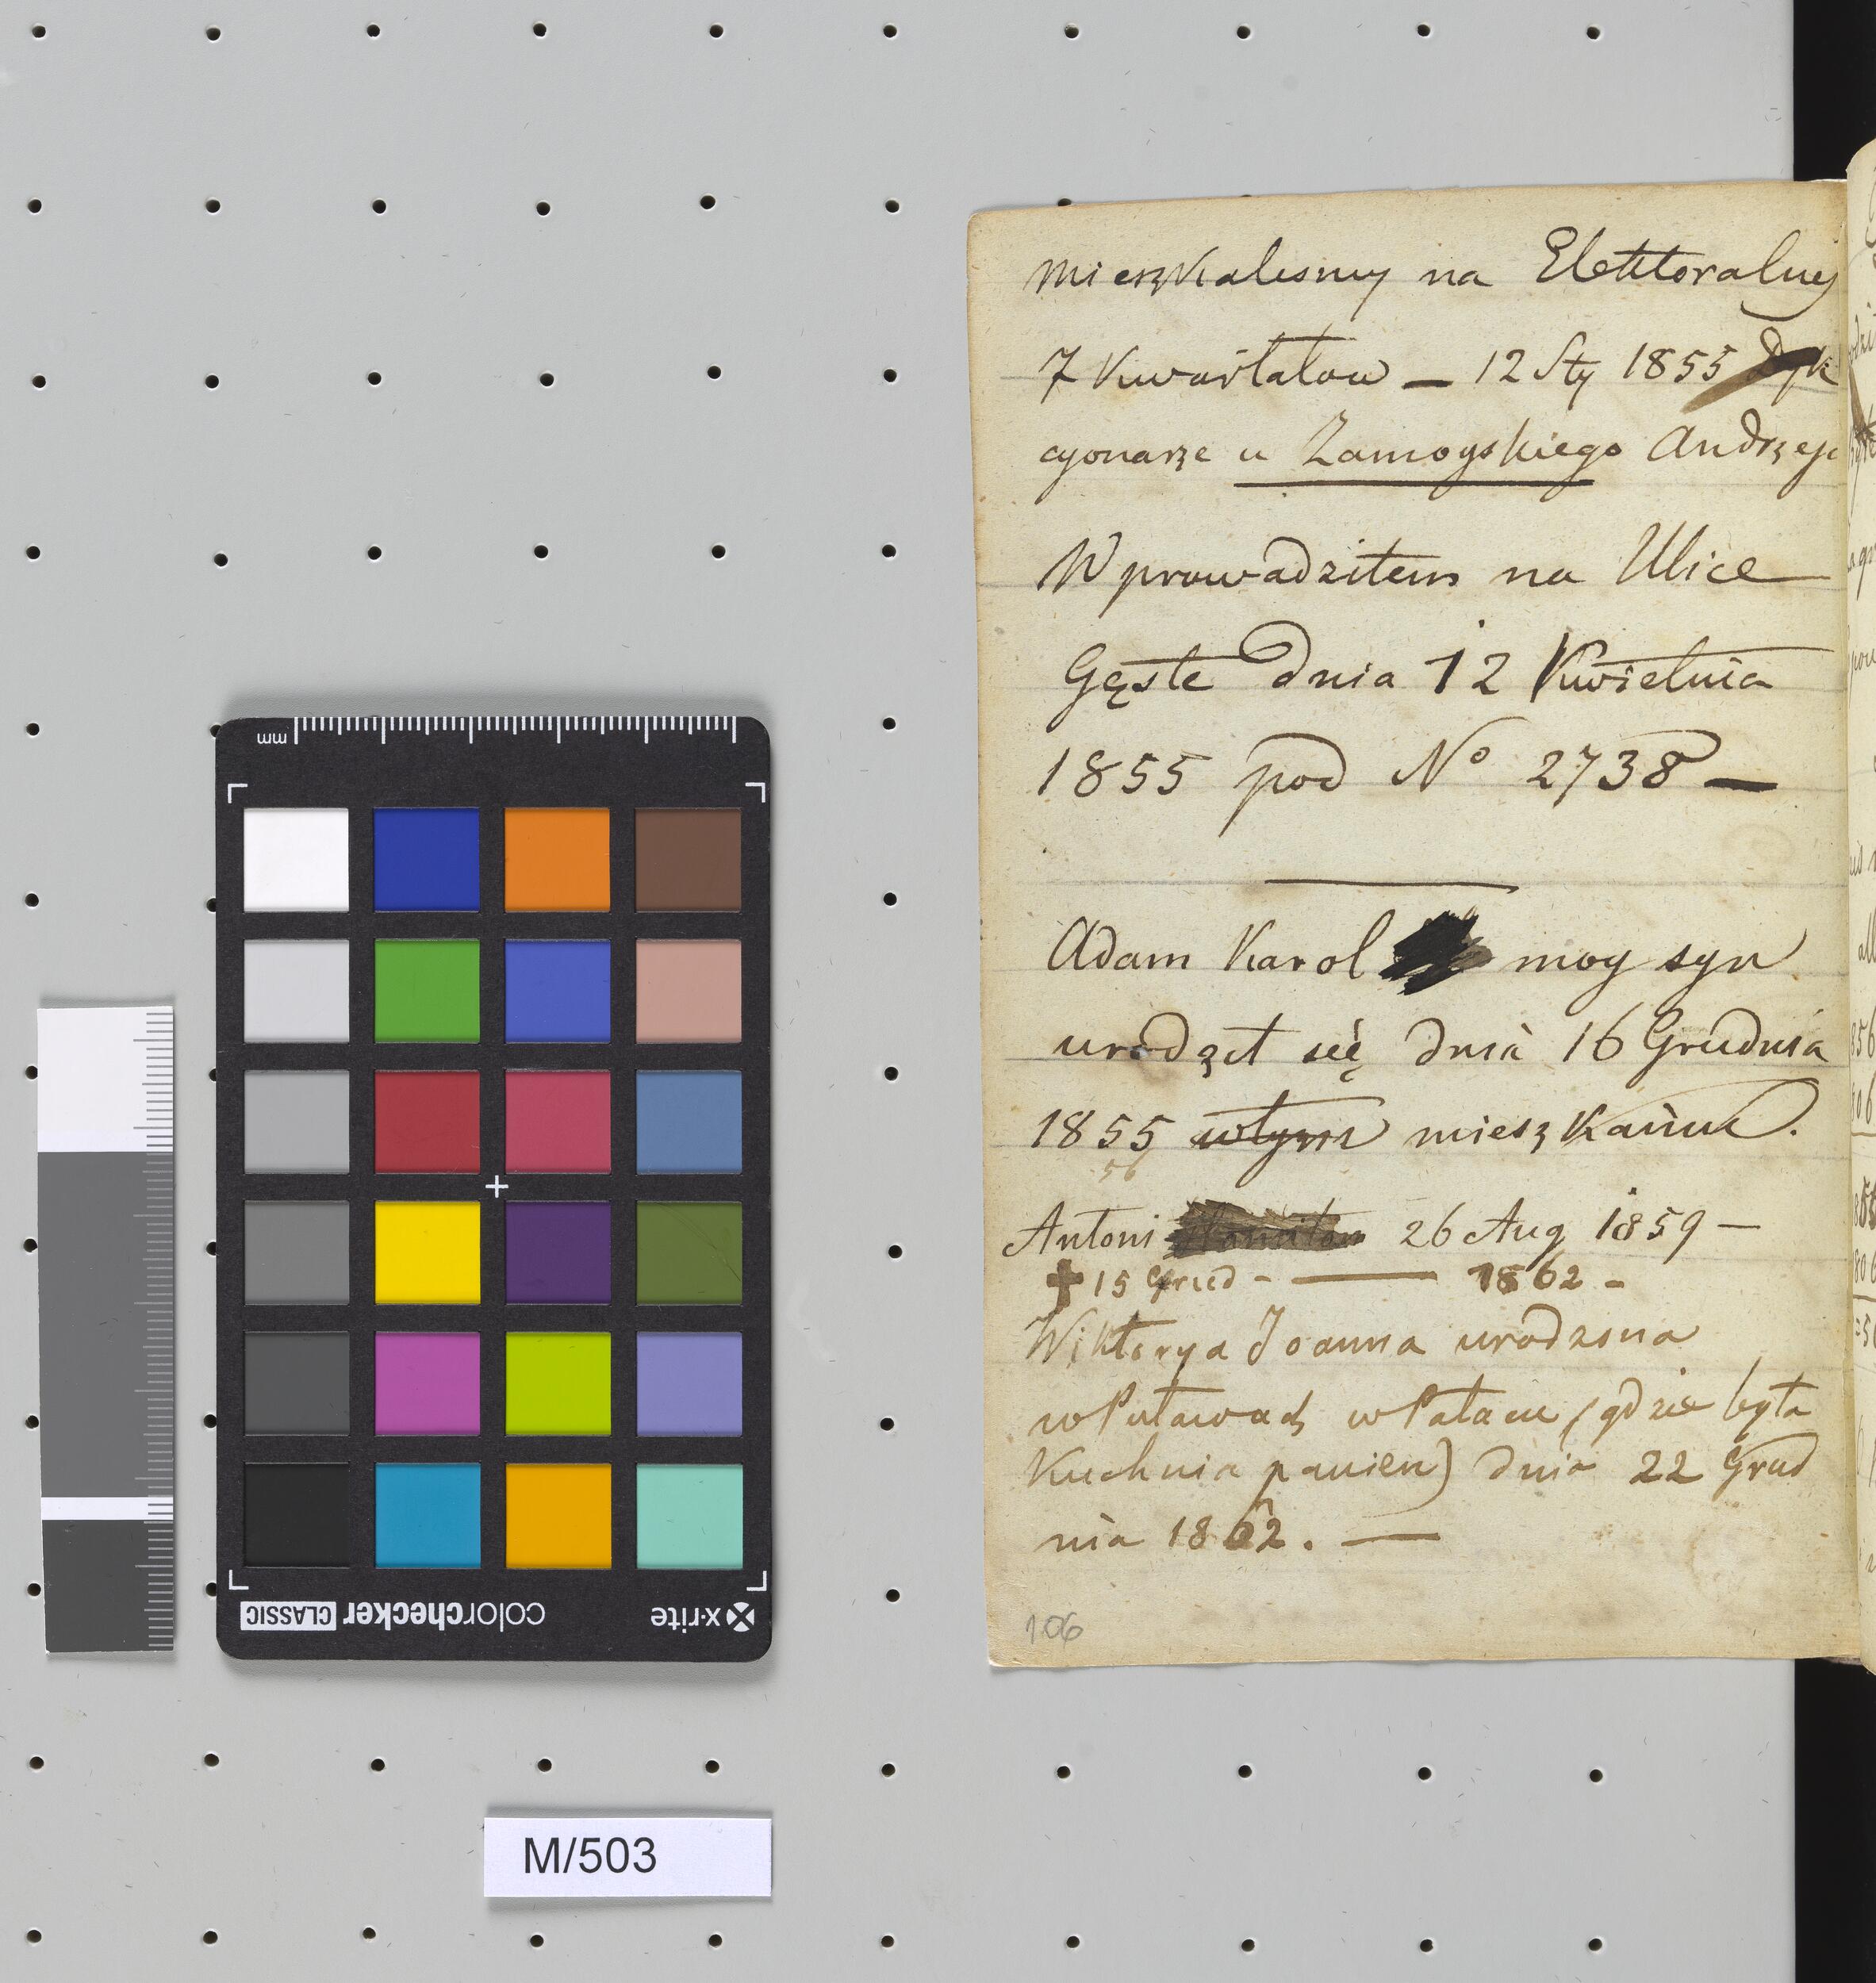 mieszkalismy na Elektoralney
7 Kwartałow – 12 Sty 1855 Dyk
cyonarze u Zamoyskiego Andrzeja
Wprowadziłem na Ulice
Gęste dnia 12 Kwietnia
1855 pod No 2738 –
Adam Karol moy syn
urodził się dnia 16 Grudnia
1855 wtym mieszkaniu.
56
Antoni 26 Aug 1859 –
✝ 15 Grud - — 1862 -
Wiktorya Joanna urodzona
w Puławach w Pałacu (gdzie była
Kuchnia panien) dnia 22 Grud
nia 1862. —
106
mm
x·rite
colorchecker CLASSIC
M/503